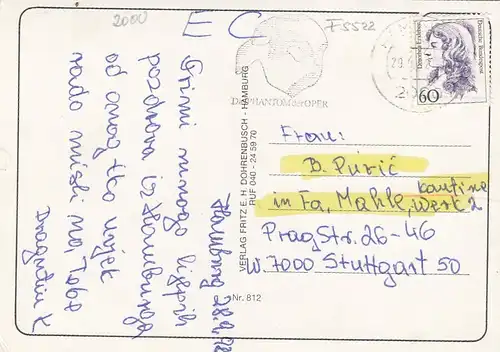 2000
E C
F5522
Das PHANTOM der OPER
Dorothea Erxleben
Deutsche Bundespost
60
Hamburg 28.9.92
Primi mnogo lijepih
pozdrava iz Hamburga
od onog tko uvjet
rado misli na Tebe
VERLAG FRITZ E. H. DOHRENBUSCH - HAMBURG
RUF 040 - 24 59 70
Nr. 812
Frau:
B. Purić
in Fa, Mahle, kantine
Werk 2
Prag Str. 26-46
W. 7000 Stuttgart 50